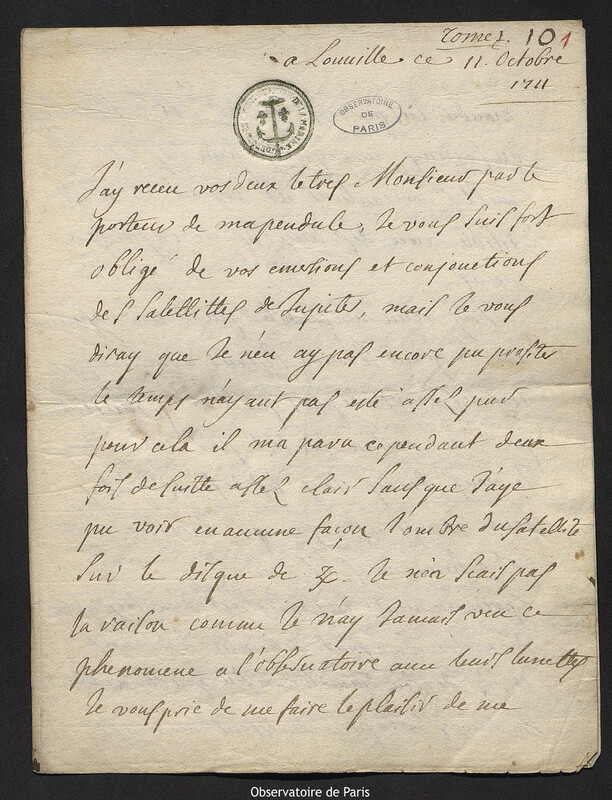 Tome 7. 101
a Louville ce 11. Octobre
1711
OBSERVATOIRE
DE
PARIS
J'ay receu vos deux lettres Monsieur par le
porteur de ma pendule, Je vous suis fort
obligé de vos emersions et conjonctions
des Satellittes de Jupiter, mais Je vous
diray que Je n'en ay pas encore pu profiter
le temps n'ayant pas esté assez pur
pour cela il ma paru cependant deux
fois de suitte assez clair sans que J'aye
pu voir en aucune façon l'ombre du satellite
sur le disque de ♃. Je n'en scais pas
la raison comme Je n'ay Jamais veu ce
phenomene a l'observatoire avec leurs lunettes
Je vous prie de me faire le plaisir de me
Observatoire de Paris